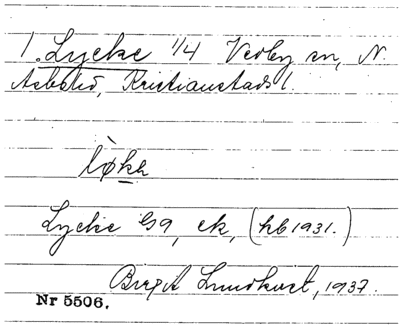 1. Lycke 1/4 Verby sn, N.
Åsbohd, Kristianstads l.
lø̀kə
Lycke G9, ek, (hb 1931.)
Birgit Lundkvist, 1937.
Nr 5506.